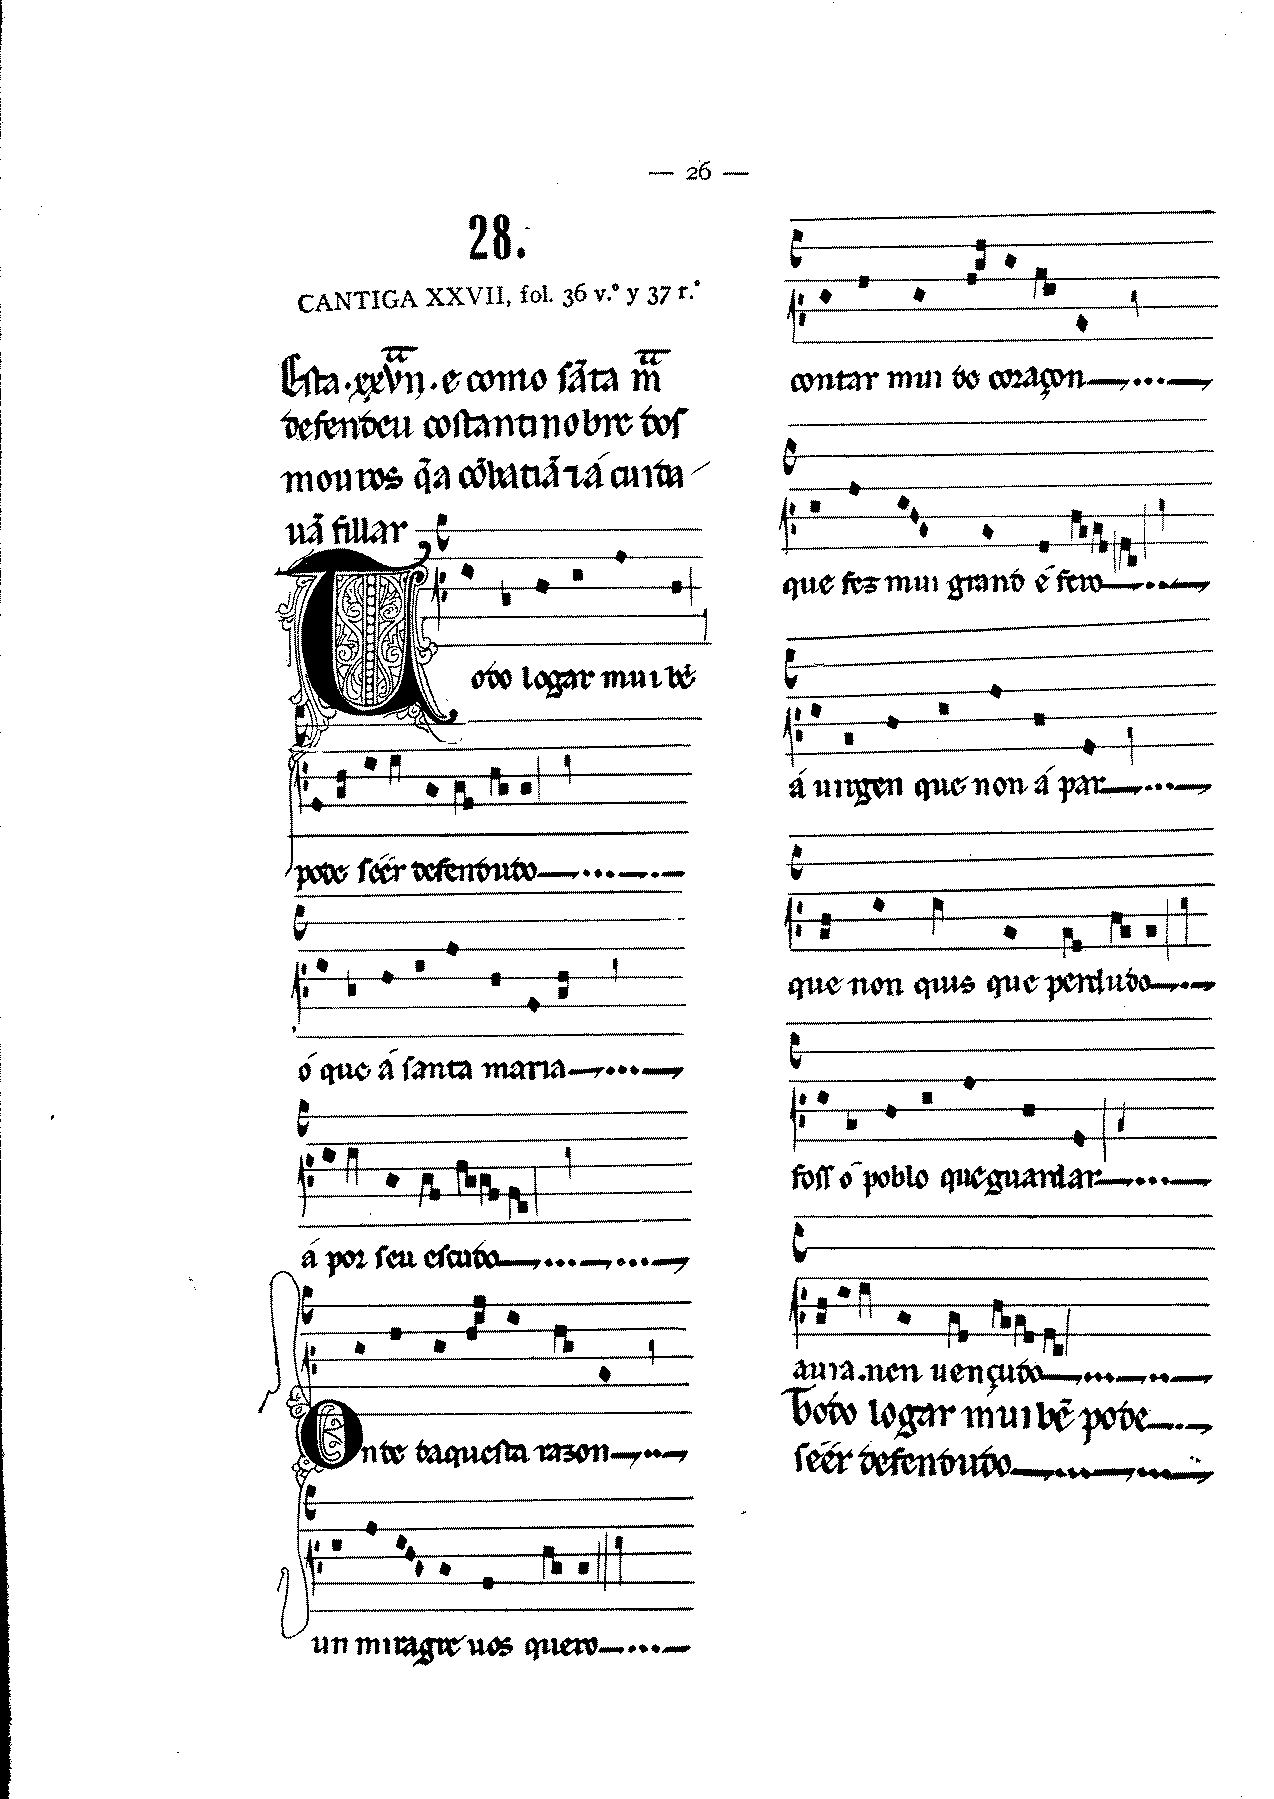 — 26 —
28.
CANTIGA XXVII, fol. 36 v.º y 37 r.º
Esta .xxviiı. e como sãta m̃
defendeu costantinobre dos
mouros q̃a cõbatiã ⁊ a cuida
uã fillar
Todo logar mui bẽ
pode seér defendudo
ó que á santa maria
á por seu escudo
Onde daquesta razon
un miragre uos quero
contar mui do coraçon
que fez mui grand é fero
á uirgen que non á par
que non quis que perdudo
foss ó poblo que guardar
auia. nen uençudo
Todo logar mui bẽ pode
seér defendudo